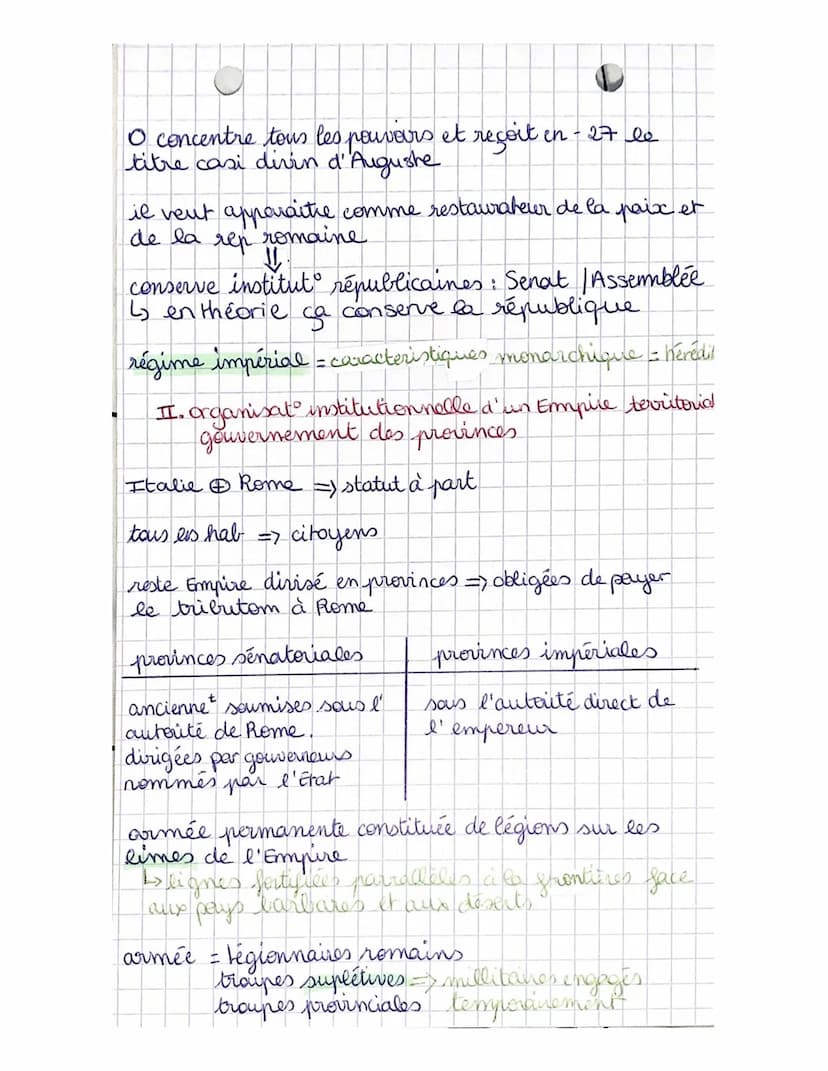 O concentre tous les pouvoirs et reçoit en - 27 le
titre casi divin d'Auguste
il veut apparaitre comme restaurateur de la paix et
de la rep romaine
⇓
conserve institut° républicaines : Senat / Assemblée
↳ en théorie ça conserve la république
régime impérial = caracteristiques monarchique = hérédi
II. organisat° institutionnelle d'un Empire territorial
gouvernement des provinces
Italie ⊕ Rome => statut à part
tous les hab => citoyens
reste Empire divisé en provinces => obligées de payer
le tributom à Rome
provinces sénatoriales | provinces impériales
anciennet soumises sous l'
autorité de Rome.
dirigées par gouverneurs
nommés par l'État
sous l'autorité direct de
l'empereur
armée permanente constituée de légions sur les
limes de l'Empire
↳ lignes fortifiées parralèles à la frontières face
aux pays barbares et aux déserts
armée = légionnaires romains
troupes suplétives => millitaires engagés
troupes provinciales temporairement